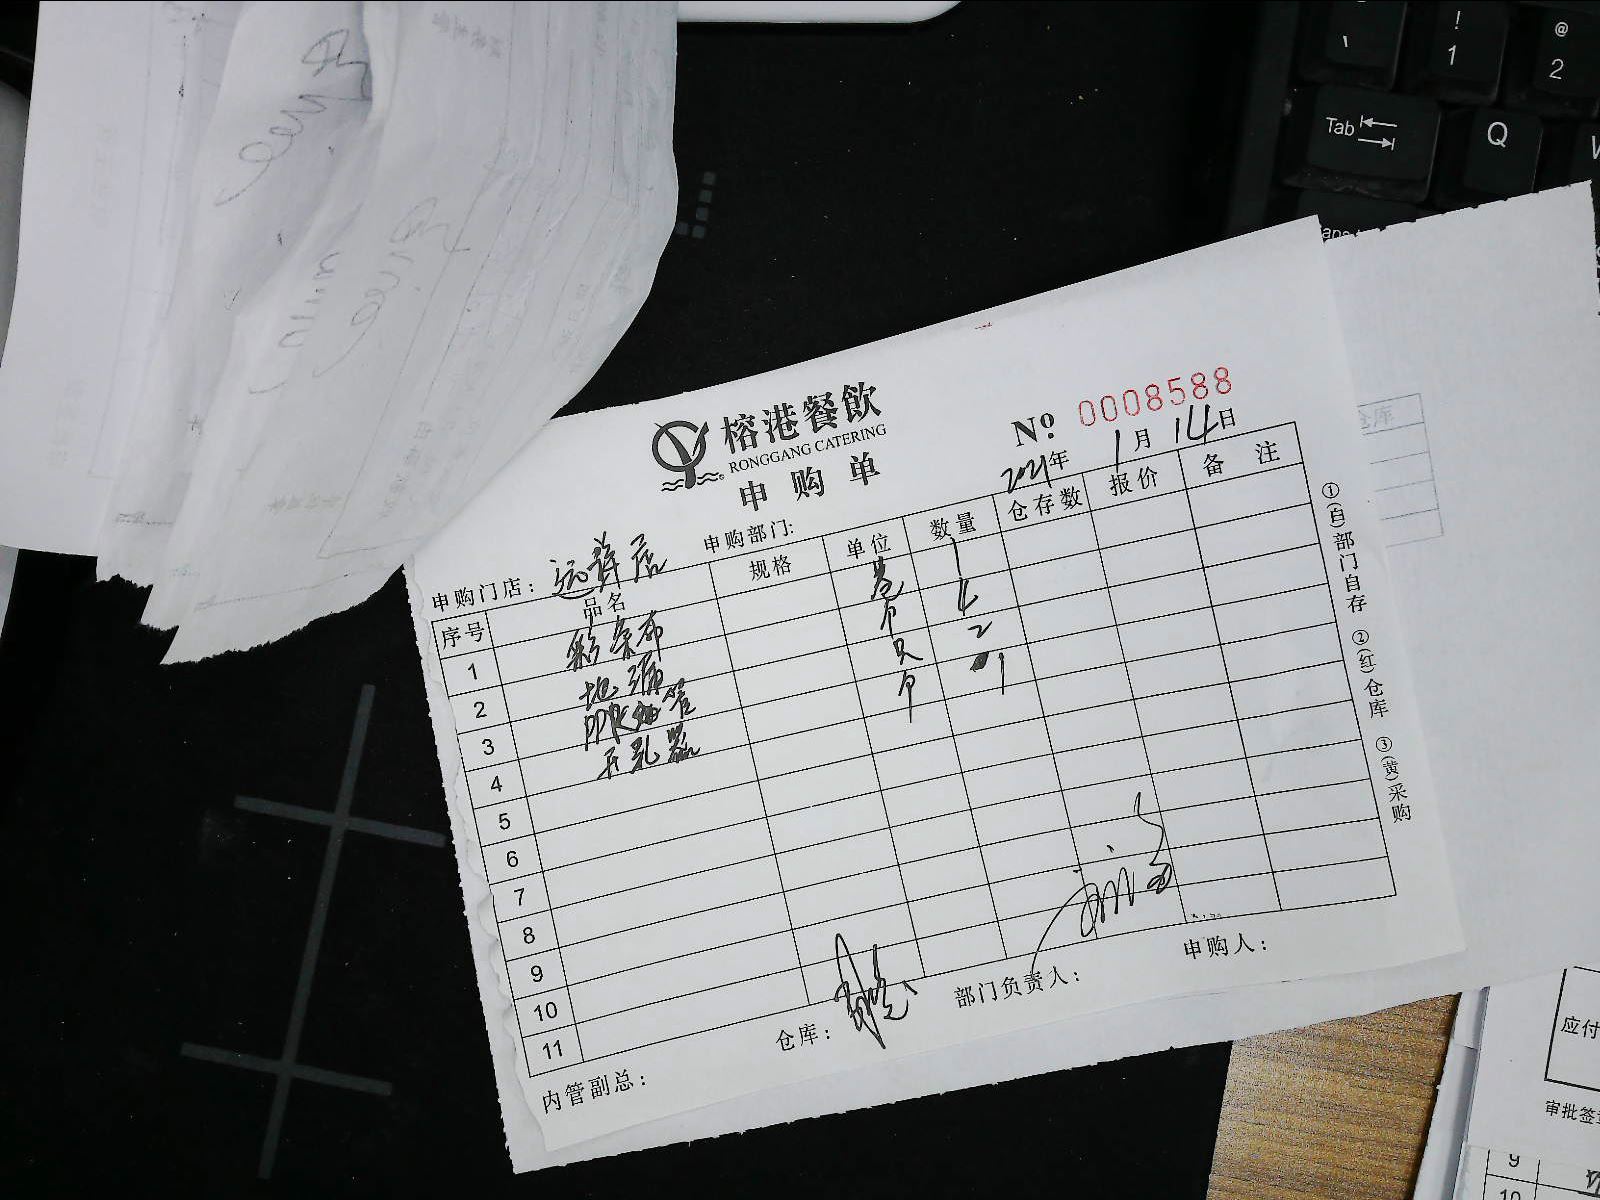 榕港餐飲
RONGGANG CATERING
申购单
No. 0008588
2021年 1月 14日
申购门店: 远辉居 申购部门:
序号 品名 规格 单位 数量 仓存数 报价 备注
1 彩条布 卷 1
2 地漏 个 4
3 PPR 管 只 2
4 开孔器 个 1
5
6
7
8
9
10
11
仓库: 部门负责人: 申购人:
内管副总:
①(白)部门自存 ②(红)仓库 ③(黄)采购
! 1
@ 2
Tab
Q
W
仓库
应付
审批签
9
10